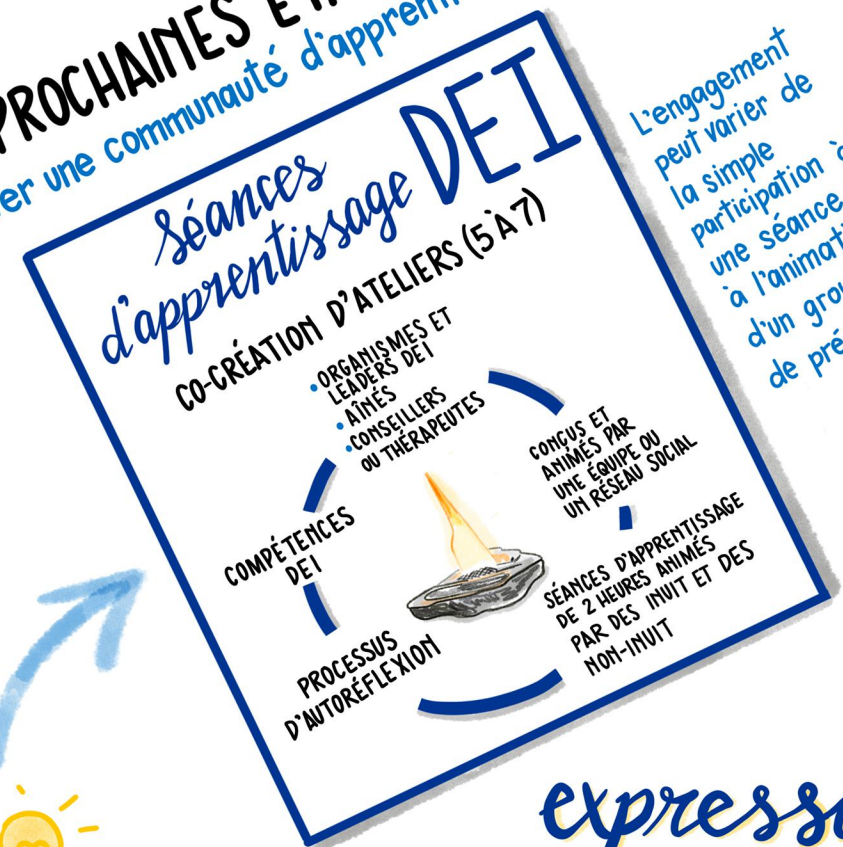 PROCHAINES
une communauté
Séances
d'apprentissage DEI
CO-CRÉATION D'ATELIERS (5 À 7)
•ORGANISMES ET
LEADERS DEI
•AÎNÉS
•CONSEILLERS
OU THÉRAPEUTES
CONÇUS ET
ANIMÉS PAR
UNE ÉQUIPE OU
UN RÉSEAU SOCIAL
SÉANCES D'APPRENTISSAGE
DE 2 HEURES ANIMÉS
PAR DES INUIT ET DES
NON-INUIT
PROCESSUS
D'AUTORÉFLEXION
COMPÉTENCES
DEI
L'engagement
peut varier de
la simple
participation à
une séance
à l'animati
d'un grou
de pré
express